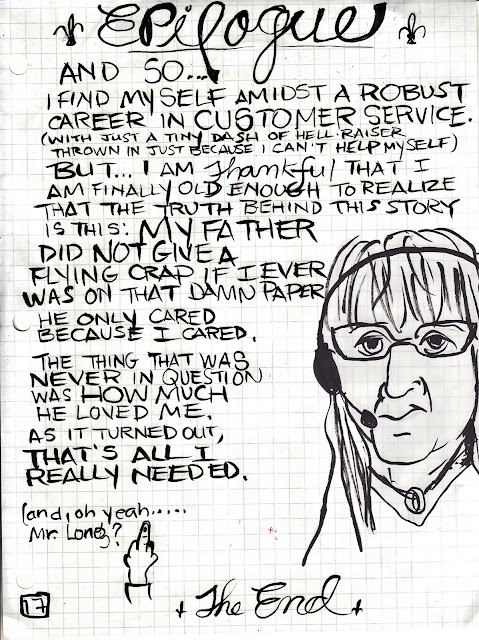 Epilogue
AND SO...
I FIND MYSELF AMIDST A ROBUST
CAREER IN CUSTOMER SERVICE.
(WITH JUST A TINY DASH OF HELL-RAISER
THROWN IN JUST BECAUSE I CAN'T HELP MYSELF)
BUT... I AM Thankful THAT I
AM FINALLY OLD ENOUGH TO REALIZE
THAT THE TRUTH BEHIND THIS STORY
IS THIS: MY FATHER
DID NOT GIVE A
FLYING CRAP IF I EVER
WAS ON THAT DAMN PAPER
HE ONLY CARED
BECAUSE I CARED.
THE THING THAT WAS
NEVER IN QUESTION
WAS HOW MUCH
HE LOVED ME.
AS IT TURNED OUT,
THAT'S ALL I
REALLY NEEDED.
(and, oh yeah.....
Mr. Lonez?
17
The End